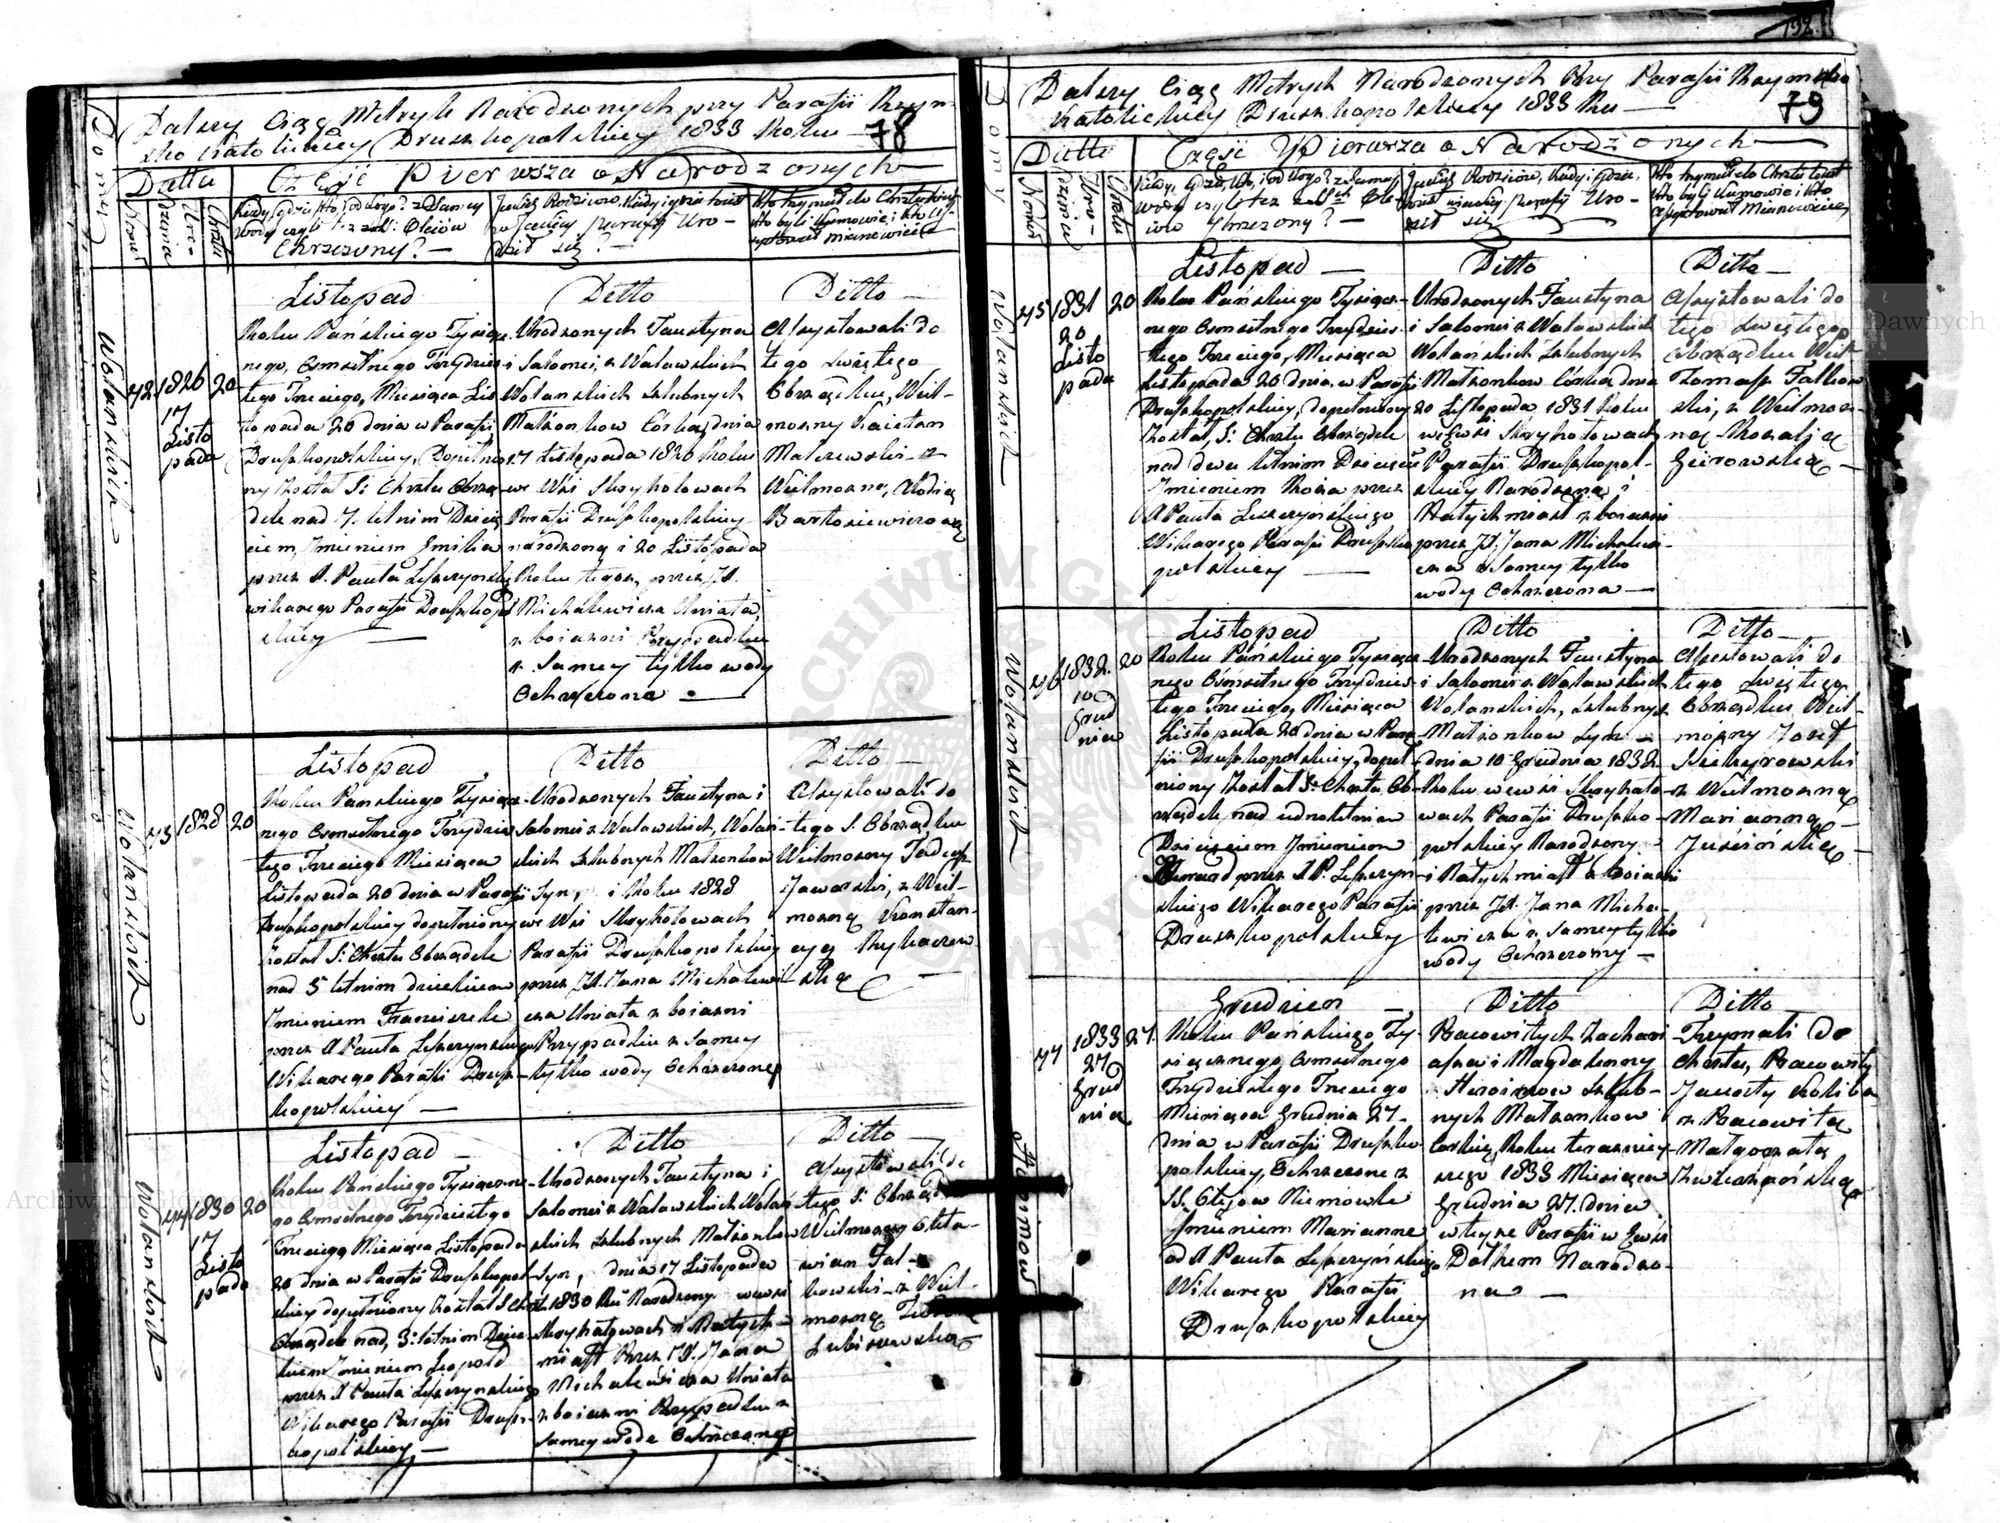 192.
Domy
Dalszy Ciąg Metryk Narodzonych przy Parafii Rzym-
sko Katolickiey Druszkopolskiey 1833 Roku
78
Datta
Część Pierwsza o Narodzonych
Numer
Dzienna
Uro-
Chrztu
Kiedy, gdzie, kto, od kogo? z Samey
wody czyli też z Oleiów
Chrzczony? —
Jakich Rodziców, kiedy i gdzie
w Jakiey parafii Uro-
dził się? —
Kto trzymał do Chrztu
kto byli Kumowie i kto
assystował mianowicie
Wolanskich
72
1826
17
Listo
pada
20
Listopad
Roku Pańskiego Tysiącz-
nego, Osmsetnego Trzydzies-
tego Trzeciego, Miesiąca Lis
topada 20 dnia w Parafii
Druszkopolskiey, Dopełnio
ny Został S: Chrztu Obrzą-
dek nad 7. letnim Dzieię
ciem Imieniem Emilia
przez X. Pawła Leszczynsk
wikarego Parafii Druszkopol
skiey —
Ditto
Urodzonych Faustyna
i Salomei z Walawskich
Wolanskich Szlubnych
Małżonkow Córka, dnia
17 Listopada 1826 Roku
we Wsi Skrykołowach
Parafii Druszkopolskiey
narodzona i 20 Listopada
Roku tegoż, przez JX.
Michalewicza Uniata,
z boiazni Przypadku
z Samey tylko wody
Ochrzczona —
Ditto —
Assystowali do
tego Swiętego
Obrządku, Wiel-
mozny Kaietan
Malczewski z
Wielmozną
Bartosiewiczową
Wolańskich
73
1828
20
Listopad
Roku Panskiego Tysiącz-
nego Osmsetnego Trzydzies
tego Trzeciego Miesiąca
Listopada 20 dnia w Parafii
Druszkopolskiey dopełniony
Został S: Chrztu Obrządek
nad 5 letnim dziecięciem
Imieniem Franciszek
przez X Pawła Leszczynskiego
Wikarego Parafii Drusz-
kopolskiey —
Ditto
Urodzonych Faustyna i
Salomei z Walawskich, Wolań-
skich Szlubnych Małżonkow
Syn, i Roku 1828
we Wsi Skrykołowach
Parafii Druszkopolskiey
przez JX. Jana Michalewi
cza Uniata z boiazni
Przypadku z Samey
tylko wody Ochrzczony
Ditto —
Assystowali do
tego S: Obrządku
Wielmozny Tadeusz
Jaworski, z Wiel-
mozną Konstan-
cyą Rybaczew
ską —
Wolanskich
74
1830
17
Listo
pada
20
Listopad —
Roku Panskiego Tysiączne
go Osmsetnego Trzydziestego
Trzeciego Miesiąca Listopada
20 dnia w Parafii Druszkopol
skiey dopełniony Został S Chrz
Obrządek nad, 3: letnim Dziec
kiem Imieniem Leopold
przez X Pawła Leszczynskiego
Wikarego Parafii Drusz-
kopolskiey, —
Ditto
Urodzonych Faustyna i
Salomei z Walawskich Wolań
skich Szlubnych Małżonkow
Syn, dnia 17 Listopada
1830 Ru Narodzony wewsi
Skrykołowach i Natych-
miast Przez JX. Jana
Michalewicza Uniata
z boiazni Przypadku z
Samey wode Ochrzczony
Ditto —
Assystowali do
tego S: Obrządku
Wielmozny Okta-
wian Fal-
kowski z Wiel-
mozną
Lubiszewską
Domy
Dalszy Ciąg Metrych Narodzonych Przy Parafii Rzymsko
Katolickiey Druszkopolskiey 1833 Ru —
79
Datta
Część Pierwsza o Narodzonych —
Numer
Dzienna
Uro-
Chrztu
Kiedy, Gdzie, Kto, i od kogo? z Samey
wody czyli też z Ole-
iow Chrzczony? —
Jakich Rodziców, Kiedy i gdzie
w Jakiey Parafii Uro-
dził się
Kto trzymał do Chrztu
kto byli Kumowie i kto
assystował Mianowicie
Wolanskich
75
1831
20
Listo
pada
20
Listopad —
Roku Pańskiego Tysiącz-
nego Osmsetnego Trzydzies-
tego Trzeciego, Miesiąca
Listopada 20 dnia w Parafii
Druszkopolskiey, dopełniony
Został, S: Chrztu Obrządek
nad dwu letnim Dziecięciem
Imieniem Roża przez
X Pawła Leszczynskiego
Wikarego Parafii Druszko
polskiey —
Ditto
Urodzonych Faustyna
i Salomei z Walawskich
Wolańskich Szlubnych
Małzonkow Córka, dnia
20 Listopada 1831 Roku
wewsi Skrykołowach
Parafii Druszkopol-
skiey Narodzona i
Natychmiast z boiazni
przez JX. Jana Michalewi-
cza z Samey tylko
wody Ochrzczona —
Ditto —
Assystowali do
tego Swiętego
Obrządku Wiel
Tomasz Falkow
ski, z Wielmoz-
ną Rozalią
Wolańskich
76
1832.
10
Grud
nia
20
Listopad
Roku Pańskiego Tysiącz
nego Osmsetnego Trzydzies-
tego Trzeciego, Miesiąca
Listopada 20 dnia w Para-
fii Druszkopolskiey, dopeł
niony Został S: Chrztu, Ob-
rządek, nad iednoletnim
Dziecięciem Imieniem
przez X P. Leszczyn-
skiego Wikarego Parafii
Druszkopolskiey
Ditto
Urodzonych Faustyna
i Salomei z Walawskich
Wolanskich, Szlubnych
Małzonkow Syn —
dnia 10 Grudnia 1832
Roku wewsi Skrykoło-
wach Parafii Druszko-
polskiey Narodzony
i Natychmiast z boiazni
przez JX. Jana Micha-
lewicza z Samey tylko
wody Ochrzczony —
Ditto —
Assystowali do
tego Swiętego
Obrządku Wiel-
mozny Jozef
z Wielmozną
Marianną
77
1833
27
Grud
nia
27.
Grudzien —
Roku Pańskiego Ty-
siącznego Osmsetnego
Trzydziestego Trzeciego
Miesiąca Grudnia 27.
dnia w Parafii Druszko-
polskiey, Ochrzczone z
SS. Oleiow Niemowle
Imieniem Marianna
od X Pawła Leszczyńskiego
Wikarego Parafii
Druszkopolskiey
Ditto
Pracowitych Zachari
asza i Magdaleny
Szlub-
nych Małżonkow
Corka, Roku teraznieiy-
szego 1833 Miesiąca
Grudnia 27. dnia
w teyze Parafii w Gwsi
Dołhem Narodzo-
na —
Ditto
Trzymali do
Chrztu, Pracowity
z Pracowitą
Małgorzatą
Archiwum Główne Akt Dawnych
Archiwum Główne Akt Dawnych
ARCHIWUM GŁÓWNE AKT DAWNYCH